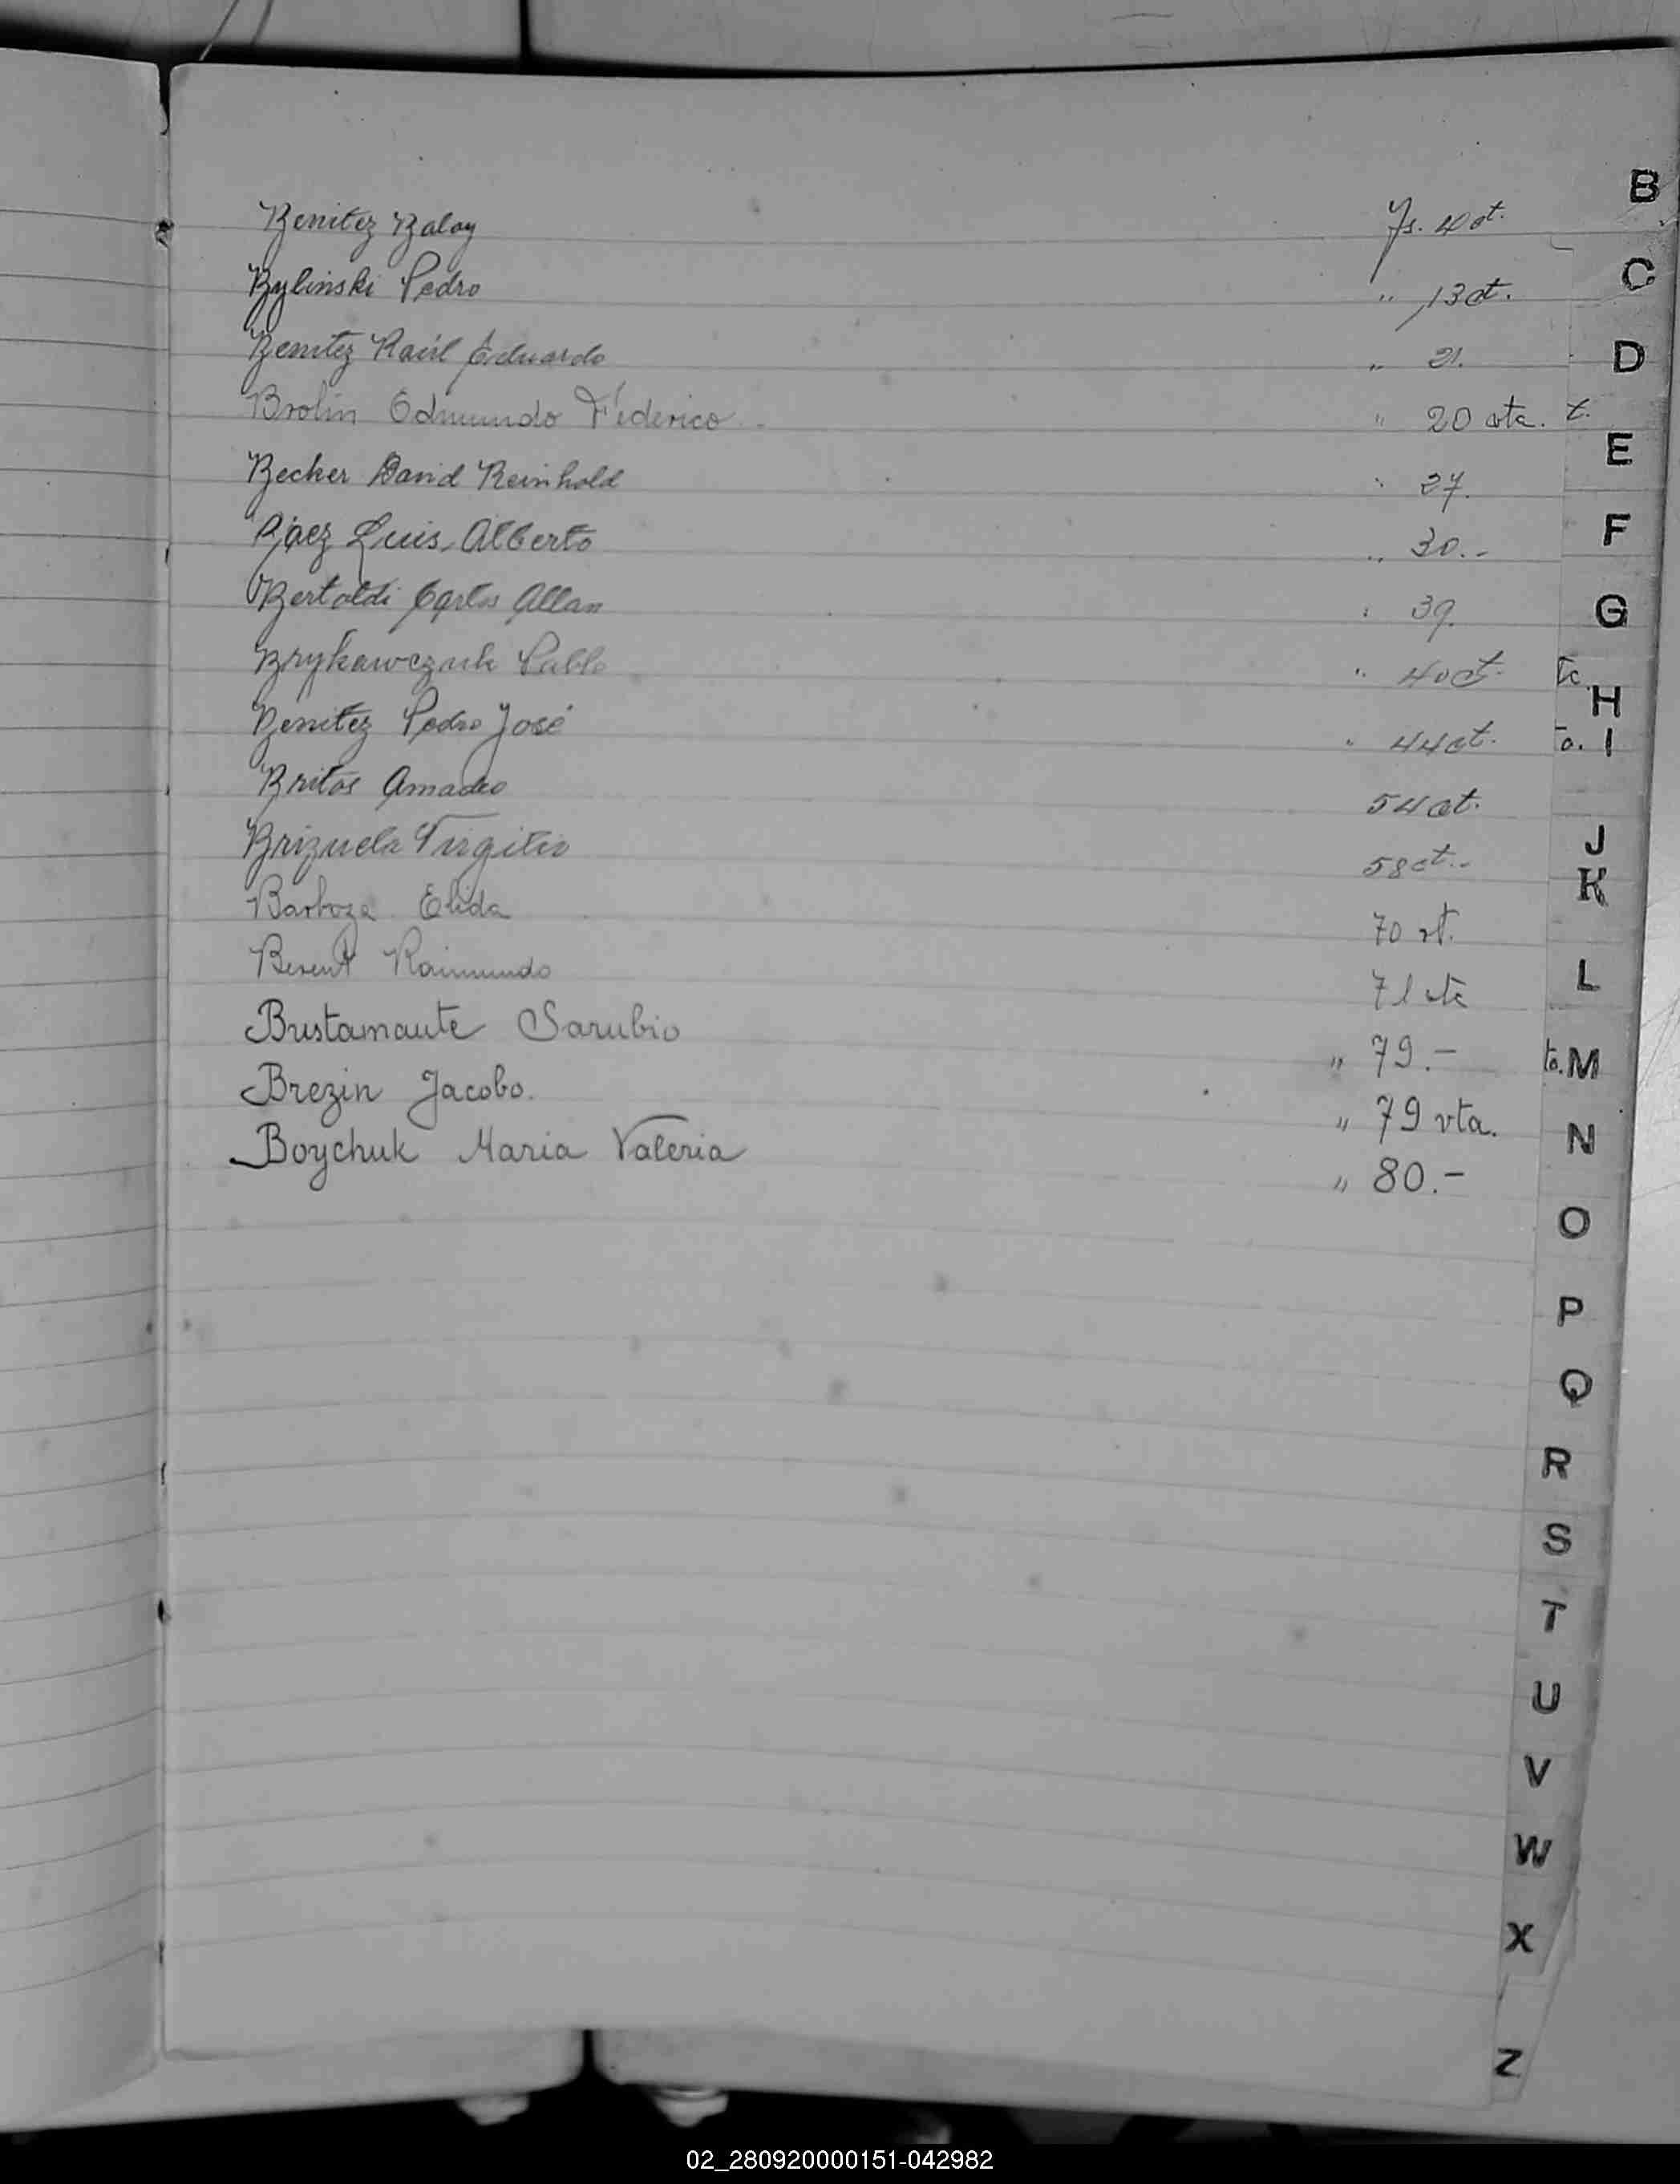 B
Benitez Baloy Fs. 4 vt.
Bylinski Pedro " 13 vt.
Benitez Raúl Eduardo " 21.
Brolin Edmundo Federico " 20 vta. t.
Becker David Reinhold " 27.
Báez Luis Alberto " 30.-
Bertoldi Carlos Allan " 39.
Brykawczuk Pablo " 40 vt.
Benitez Pedro José " 44 vt.
Britos Amadeo 54 vt.
Brizuela Virgilio 58 vt.-
Barboza Elida 70 vt.
Raimundo 71 vta
Bustamante Sarubio " 79.- ta.
Brezin Jacobo. " 79 vta.
Boychuk Maria Valeria " 80.-
C
D
E
F
G
H
I
J
K
L
M
N
O
P
Q
R
S
T
U
V
W
X
Z
02_280920000151-042982